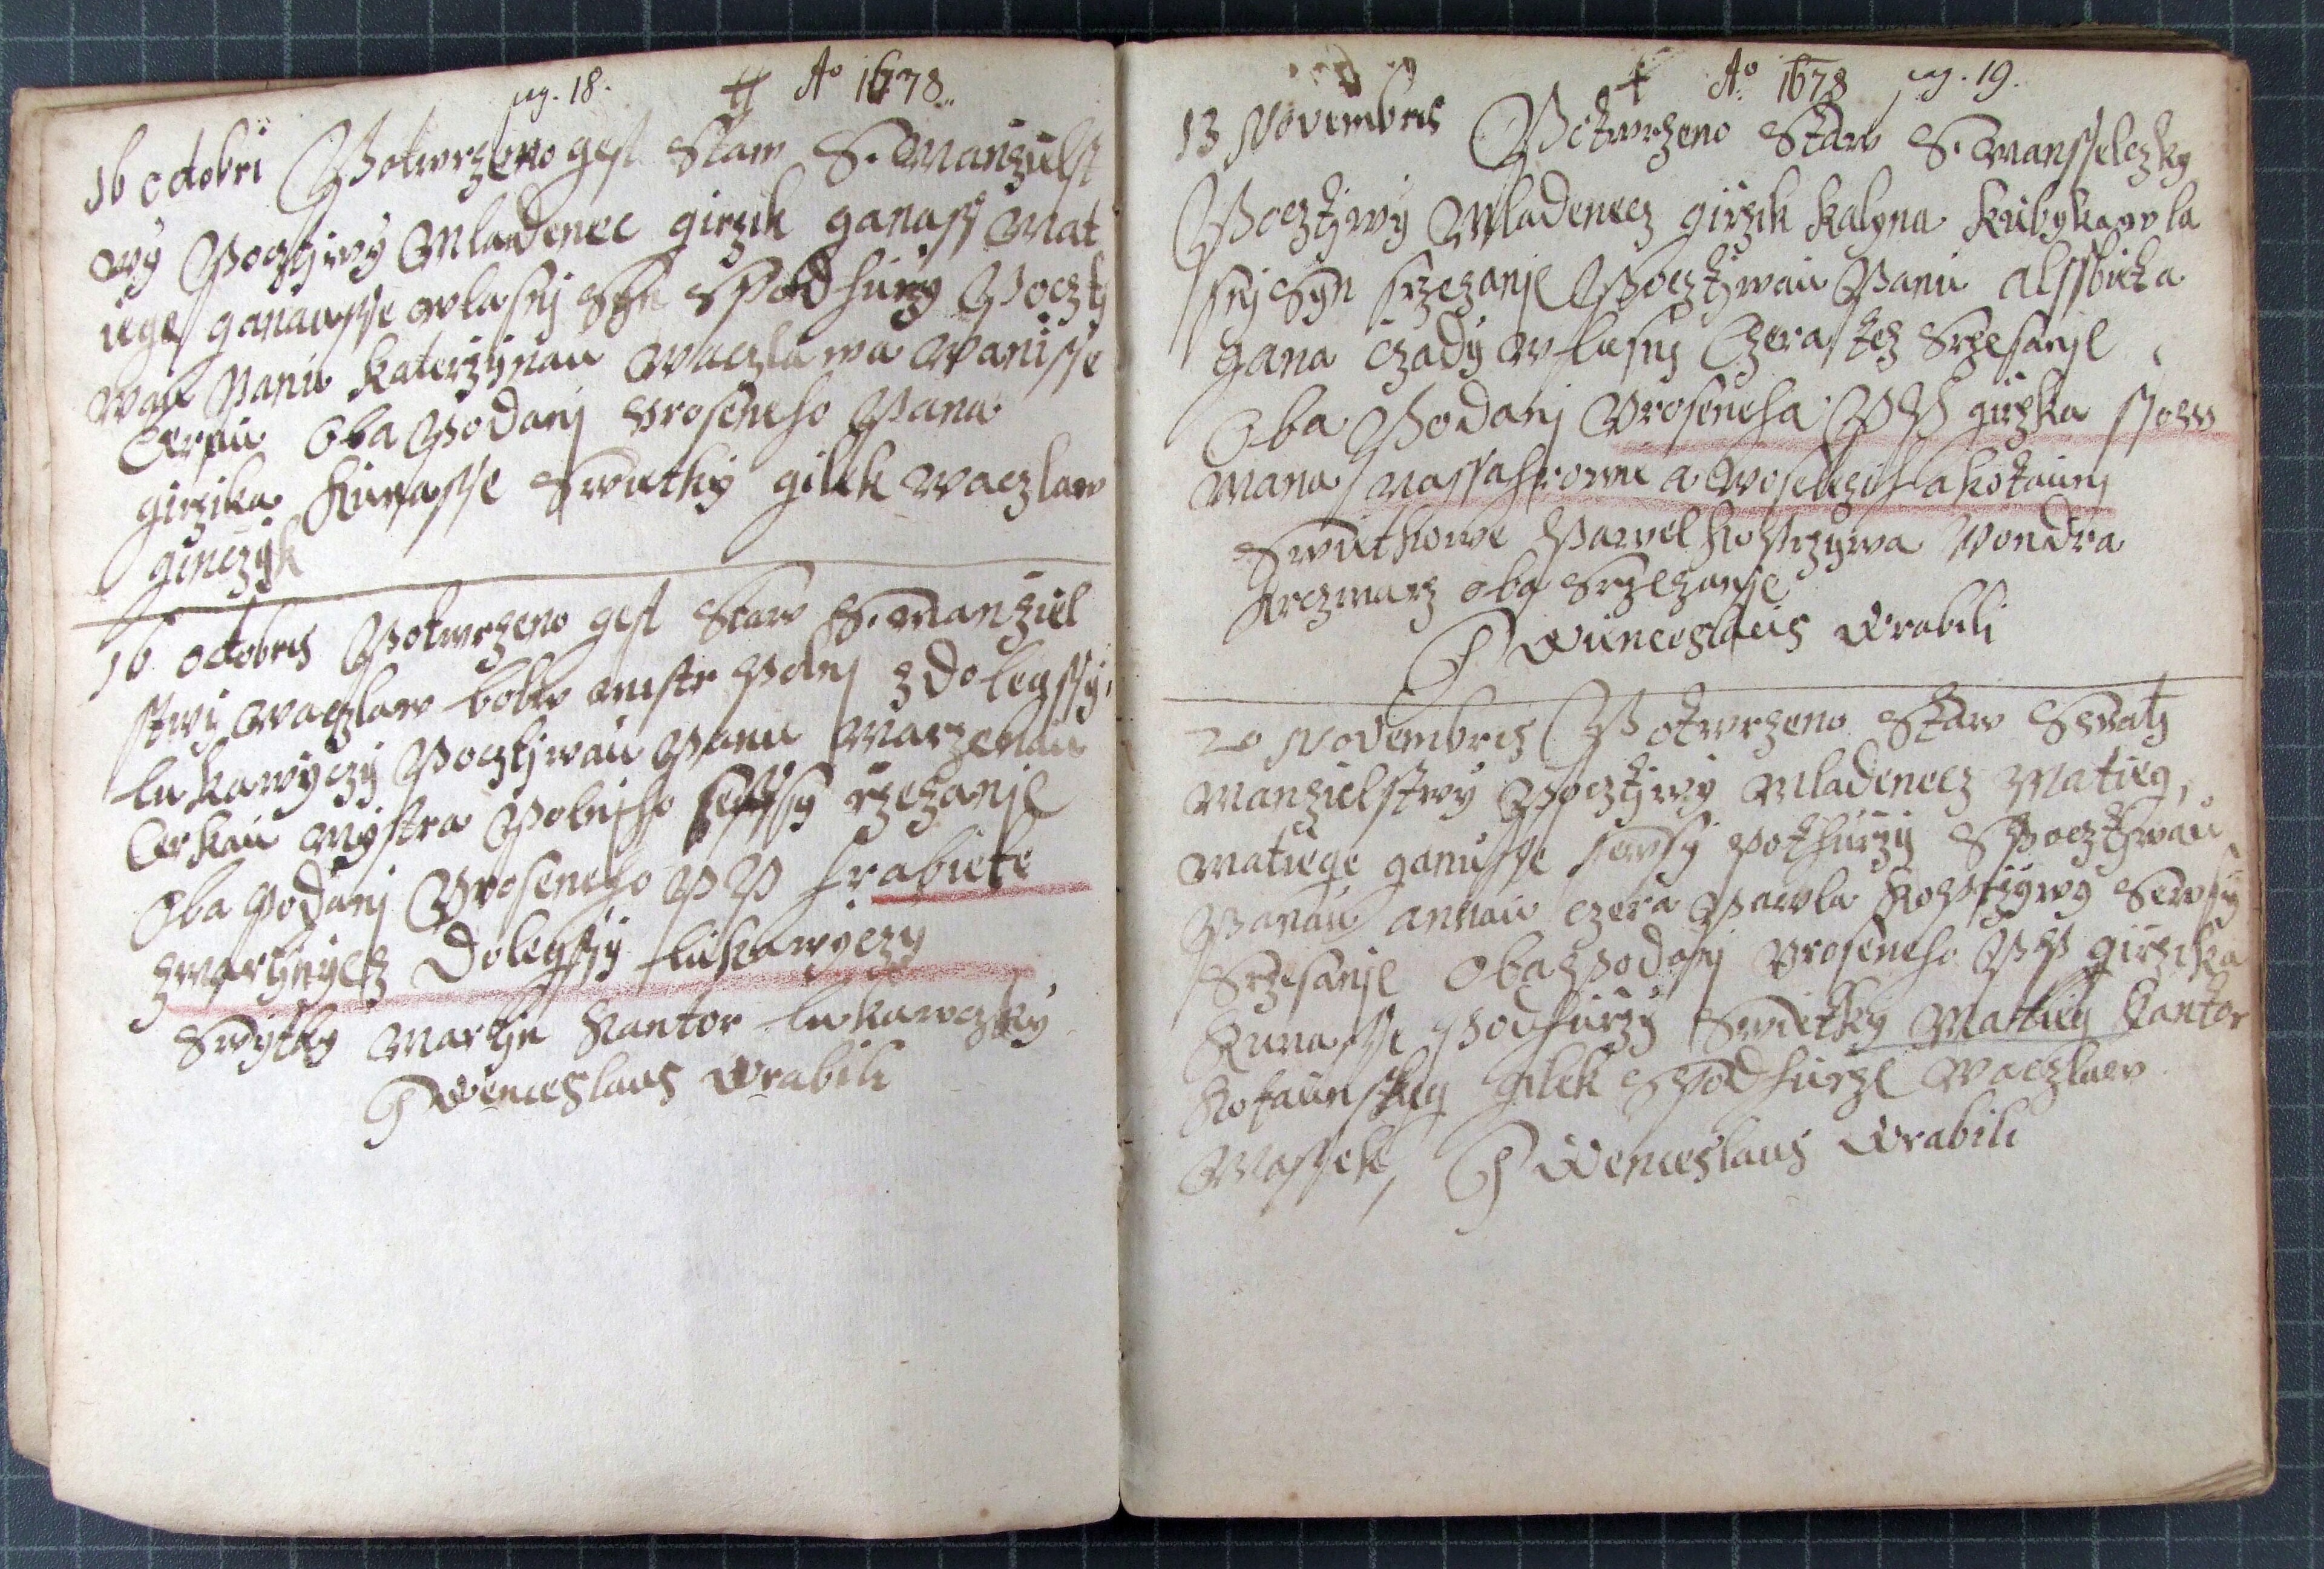 pag. 18. Ao 1678
16 octobri Potwrzeno gest Staw S. Manzielst
wy Pocztiwy Mladenec girzik ganass Mat
iege ganausse wlasnj Syn Spodhury Poczti
wau Panu Katerzynau Waczlawa Wanisse
Ceruu Oba Podanj Vroseneho Pana
girzika Kunasse Swietky gilek Waczlaw
ginczyk
16 octobris Potwrzeno gest Staw S. Manziel
stwy Waczlaw bobw mistr Panj z Dolegssy
Lukawyczy Pocztiwau Panu Marzenau
Cerkau Mystra Pobiho rzezanje
Oba Podanj Vroseneho PP hrabiete
zwartinyetz Dolegssy Lukawyczy
Swytky Martin Kantor Lukawczky
P Wenceslaus Wrabili
Ao 1678 pag. 19.
13 Novembris Potwrzeno Staw S. Mansselczky
Pocztiwy Mladenecz girzik Kalyna Kubyka wla
snj Syn Srzezanje Pocztiwau Panu Alssbieta
gana Czady wlasnj Czera tez Srzesanje
Oba Podanj Vroseneha PP girzka
mana Nassahrowne a Woseleczihla kotaunj
Swietkowe Pawel Koprzywa Vondra
Krczmarz oba Srzezanje
P Wienceslaus Wrabili
20 Novembris Potwrzeno Staw Swatj
Manzielstwy Pocztiwy Mladenecz Matieg
Matiege ganusse zewsy Pothurzy S Pocztiwau
Panau Annau Czera Pawla Koprzywy zewsy
Srzesanje Oba Podanj Vroseneho PP girzika
Kunasse Podhurzy Swietky Matieg Kantor
Kotaunskey gilek Spodhurze Waczlaw
Massek, P Wenceslaus Wrabili